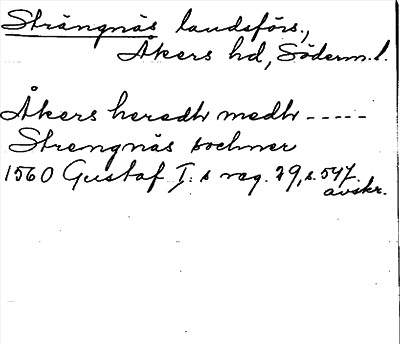 Strängnäs landsförs.,
Åkers hd, Söderm. l.
Åkers heredh medh -----
Strengnäs sochner
1560 Gustaf I:s reg. 29, s. 547.
avskr.